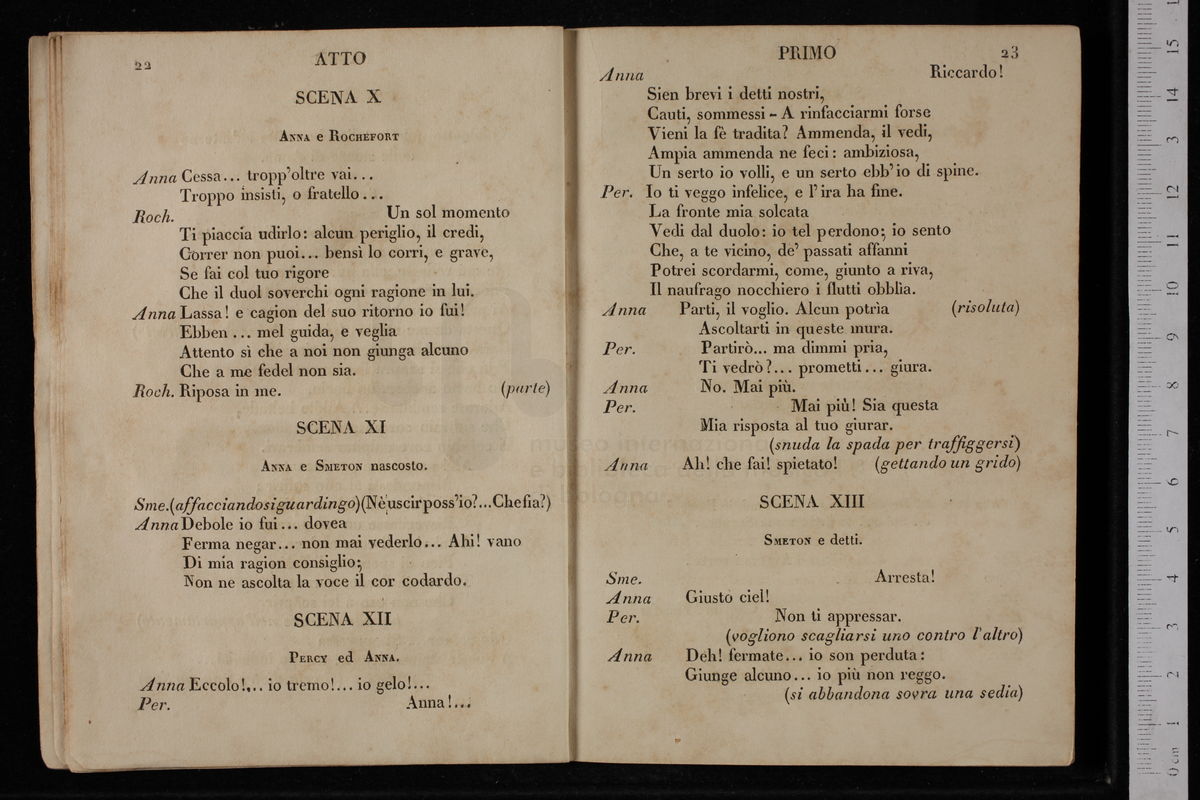 22
ATTO
SCENA X
Anna e Rochefort
Anna Cessa... tropp'oltre vai...
Troppo insisti, o fratello...
Roch. Un sol momento
Ti piaccia udirlo: alcun periglio, il credi,
Correr non puoi... bensì lo corri, e grave,
Se fai col tuo rigore
Che il duol soverchi ogni ragione in lui.
Anna Lassa! e cagion del suo ritorno io fui!
Ebben ... mel guida, e veglia
Attento sì che a noi non giunga alcuno
Che a me fedel non sia.
Roch. Riposa in me. (parte)
SCENA XI
Anna e Smeton nascosto.
Sme.(affacciandosi guardingo)(Nè uscir poss'io?...Che fia?)
Anna Debole io fui... dovea
Ferma negar... non mai vederlo... Ahi! vano
Di mia ragion consiglio;
Non ne ascolta la voce il cor codardo.
SCENA XII
Percy ed Anna.
Anna Eccolo!... io tremo!... io gelo!...
Per. Anna!...
PRIMO
23
Anna Riccardo!
Sien brevi i detti nostri,
Cauti, sommessi - A rinfacciarmi forse
Vieni la fè tradita? Ammenda, il vedi,
Ampia ammenda ne feci: ambiziosa,
Un serto io volli, e un serto ebb'io di spine.
Per. Io ti veggo infelice, e l'ira ha fine.
La fronte mia solcata
Vedi dal duolo: io tel perdono; io sento
Che, a te vicino, de' passati affanni
Potrei scordarmi, come, giunto a riva,
Il naufrago nocchiero i flutti obblìa.
Anna Parti, il voglio. Alcun potrìa (risoluta)
Ascoltarti in queste mura.
Per. Partirò... ma dimmi pria,
Ti vedrò?... prometti... giura.
Anna No. Mai più.
Per. Mai più! Sia questa
Mia risposta al tuo giurar.
(snuda la spada per traffiggersi)
Anna Ah! che fai! spietato! (gettando un grido)
SCENA XIII
Smeton e detti.
Sme. Arresta!
Anna Giusto ciel!
Per. Non ti appressar.
(vogliono scagliarsi uno contro l'altro)
Anna Deh! fermate... io son perduta:
Giunge alcuno... io più non reggo.
(si abbandona sovra una sedia)
0 cm 1 2 3 4 5 6 7 8 9 10 11 12 13 14 15